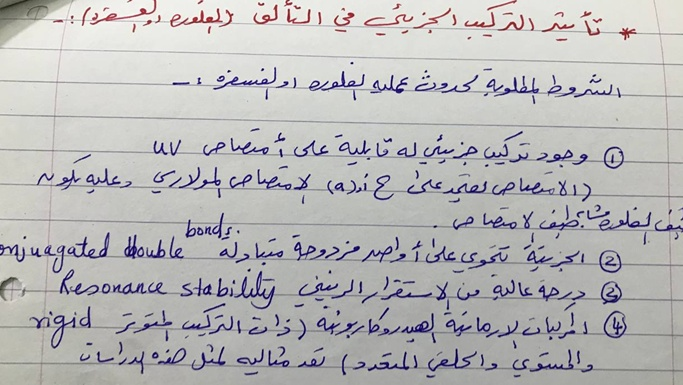 * تأثير التركيب الجزيئي في التألق (الفلوره او الفسفرة) :-
الشروط المطلوبة لحدوث عملية الفلوره او الفسفره :-
① وجود تركيب جزيئي له قابلية على أمتصاص UV
(الامتصاص يعتمد على الامتصاص المولاري وعليه يكون
طيف الفلوره مشابه لطيف لامتصاص .
② الجزيئة تحوي على أواصر مزدوجة متبادلة onjuagated double bonds.
③ درجة عالية من الاستقرار الرنيني Resonance stability
④ المركبات الارماتية الهيدروكاربونية (ذات التركيب المتوتر rigid
والمستوي والحلقي المتعدد) تعد مثاليه لمثل هذه الدراسات